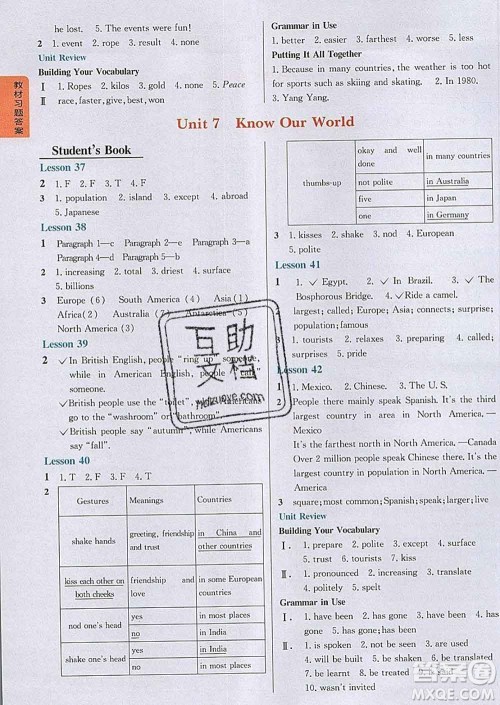 he lost. 5. The events were fun!
2 1. event 2. rope 3. result 4. none
Unit Review
Building Your Vocabulary
Ⅰ 1. Ropes 2. kilos 3. gold 4. none 5. Peace
Ⅱ race, faster, give, best, won
Grammar in Use
1. better 2. easier 3. worst 4. most
Putting It All Together
1. Because in many countries, the weather is too hot for sports such as skiing and skating. 2. In 1980.
3. Yang Yang.
教材习题答案
Unit 7 Know Our World
Student's Book
Lesson 37
2 1. F 2. F 3. T 4. F
3 1. population 2. island 3. except 4. abroad
5. Japanese
Lesson 38
1 Paragraph 1—c Paragraph 2—d Paragraph 3—a
Paragraph 4—b
2 1. increasing 2. total 3. driest 4. surface
5. billions
3 Europe (6) South America (5) Asia (1)
Africa(2) Australia(7) Antarctica(4)
North America (3)
Lesson 39
2 ✓In British English, people "ring up" someone,
while in American English, people "call"
someone.
✓British people use the "toilet",
go to the "washroom" or "bathroom".
✓British people say "autumn", while Americans
say "fall".
Lesson 40
1 1. T 2. F 3. F 4. T
2
Gestures Meanings Countries
shake hands greeting, friendship and trust in China and other countries
kiss each other on both cheeks friendship and love in some European countries
nod one's head yes in most places
no in India
shake one's head yes in India
no in most places
thumbs-up okay and well done in many countries
not polite in Australia
five in Japan
one in Germany
3 1. kisses 2. shake 3. nod 4. European
5. polite
Lesson 41
1 1. ✓ Egypt. 2. ✓ In Brazil. 3. ✓ The
Bosphorous Bridge. 4. ✓ Ride a camel.
largest; called; Europe; Australia; surprise;
population; famous
3 1. tourists 2. relaxes 3. preparing 4. creates
5. surprises 6. pride
Lesson 42
1 1. Mexico. 2. Chinese. 3. The U. S.
2 People there mainly speak Spanish. It's the third
largest country in area in North America. —
Mexico
It's the farthest north in North America. —Canada
Over 2 million people speak Chinese there. It's the
largest country in population in North America. —
3 square; most common; Spanish; speak; larger; live
Unit Review
Building Your Vocabulary
Ⅰ. 1. prepare 2. polite 3. except 4. desert
5. trust 6. tourists 7. kiss
Ⅱ. 1. pronounced 2. increasing 3. translate
4. politely 5. spelt
Grammar in Use
Ⅰ. 1. have been 2. has gone 3. have been
4. has been 5. has gone 6. has been
Ⅱ. 1. was seen 2. are made 3. is said
4. will be built 5. be spread 6. be translated
7. be learned
10. wasn't invited
互助文档
Hdzuoye.com
MXQE.COM